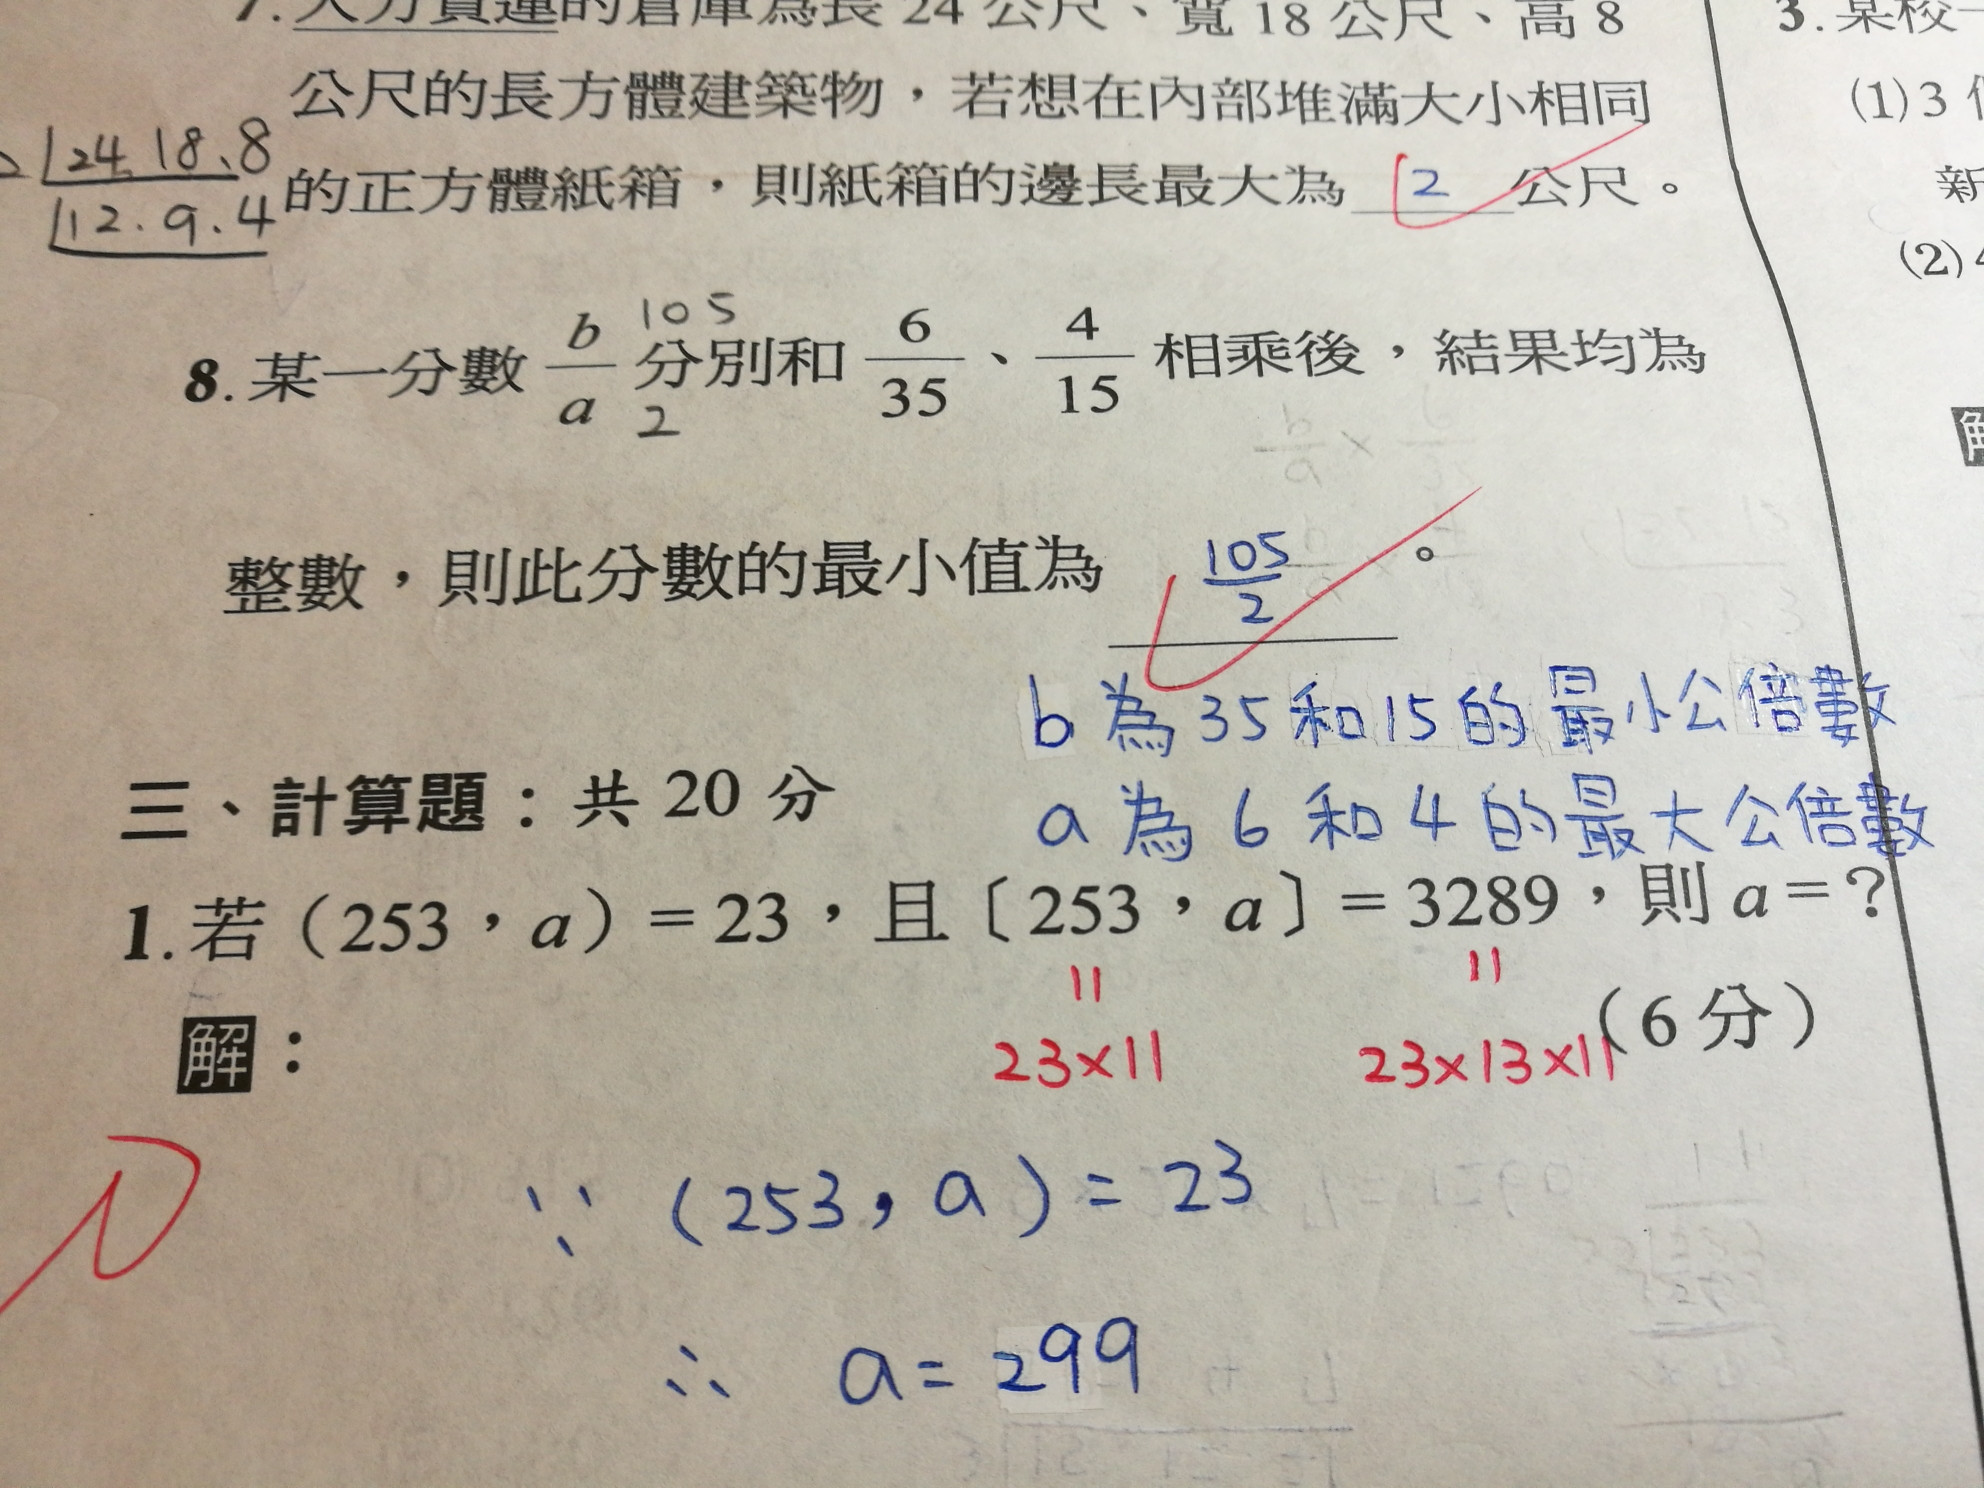 7. 大力貨運的倉庫為長 24 公尺、寬 18 公尺、高 8
公尺的長方體建築物，若想在內部堆滿大小相同
2 24. 18. 8
12. 9. 4
的正方體紙箱，則紙箱的邊長最大為 2 公尺。
8. 某一分數 b/a 分別和 6/35、4/15 相乘後，結果均為
105
2
整數，則此分數的最小值為 105/2 。
b 為 35 和 15 的最小公倍數
a 為 6 和 4 的最大公倍數
三、計算題：共 20 分
1. 若（253，a）= 23，且〔253，a〕= 3289，則 a = ?
（6 分）
解：
= =
23×11 23×13×11
∵ (253, a) = 23
∴ a = 299
3. 某校一
(1) 3
新
(2) 4
解